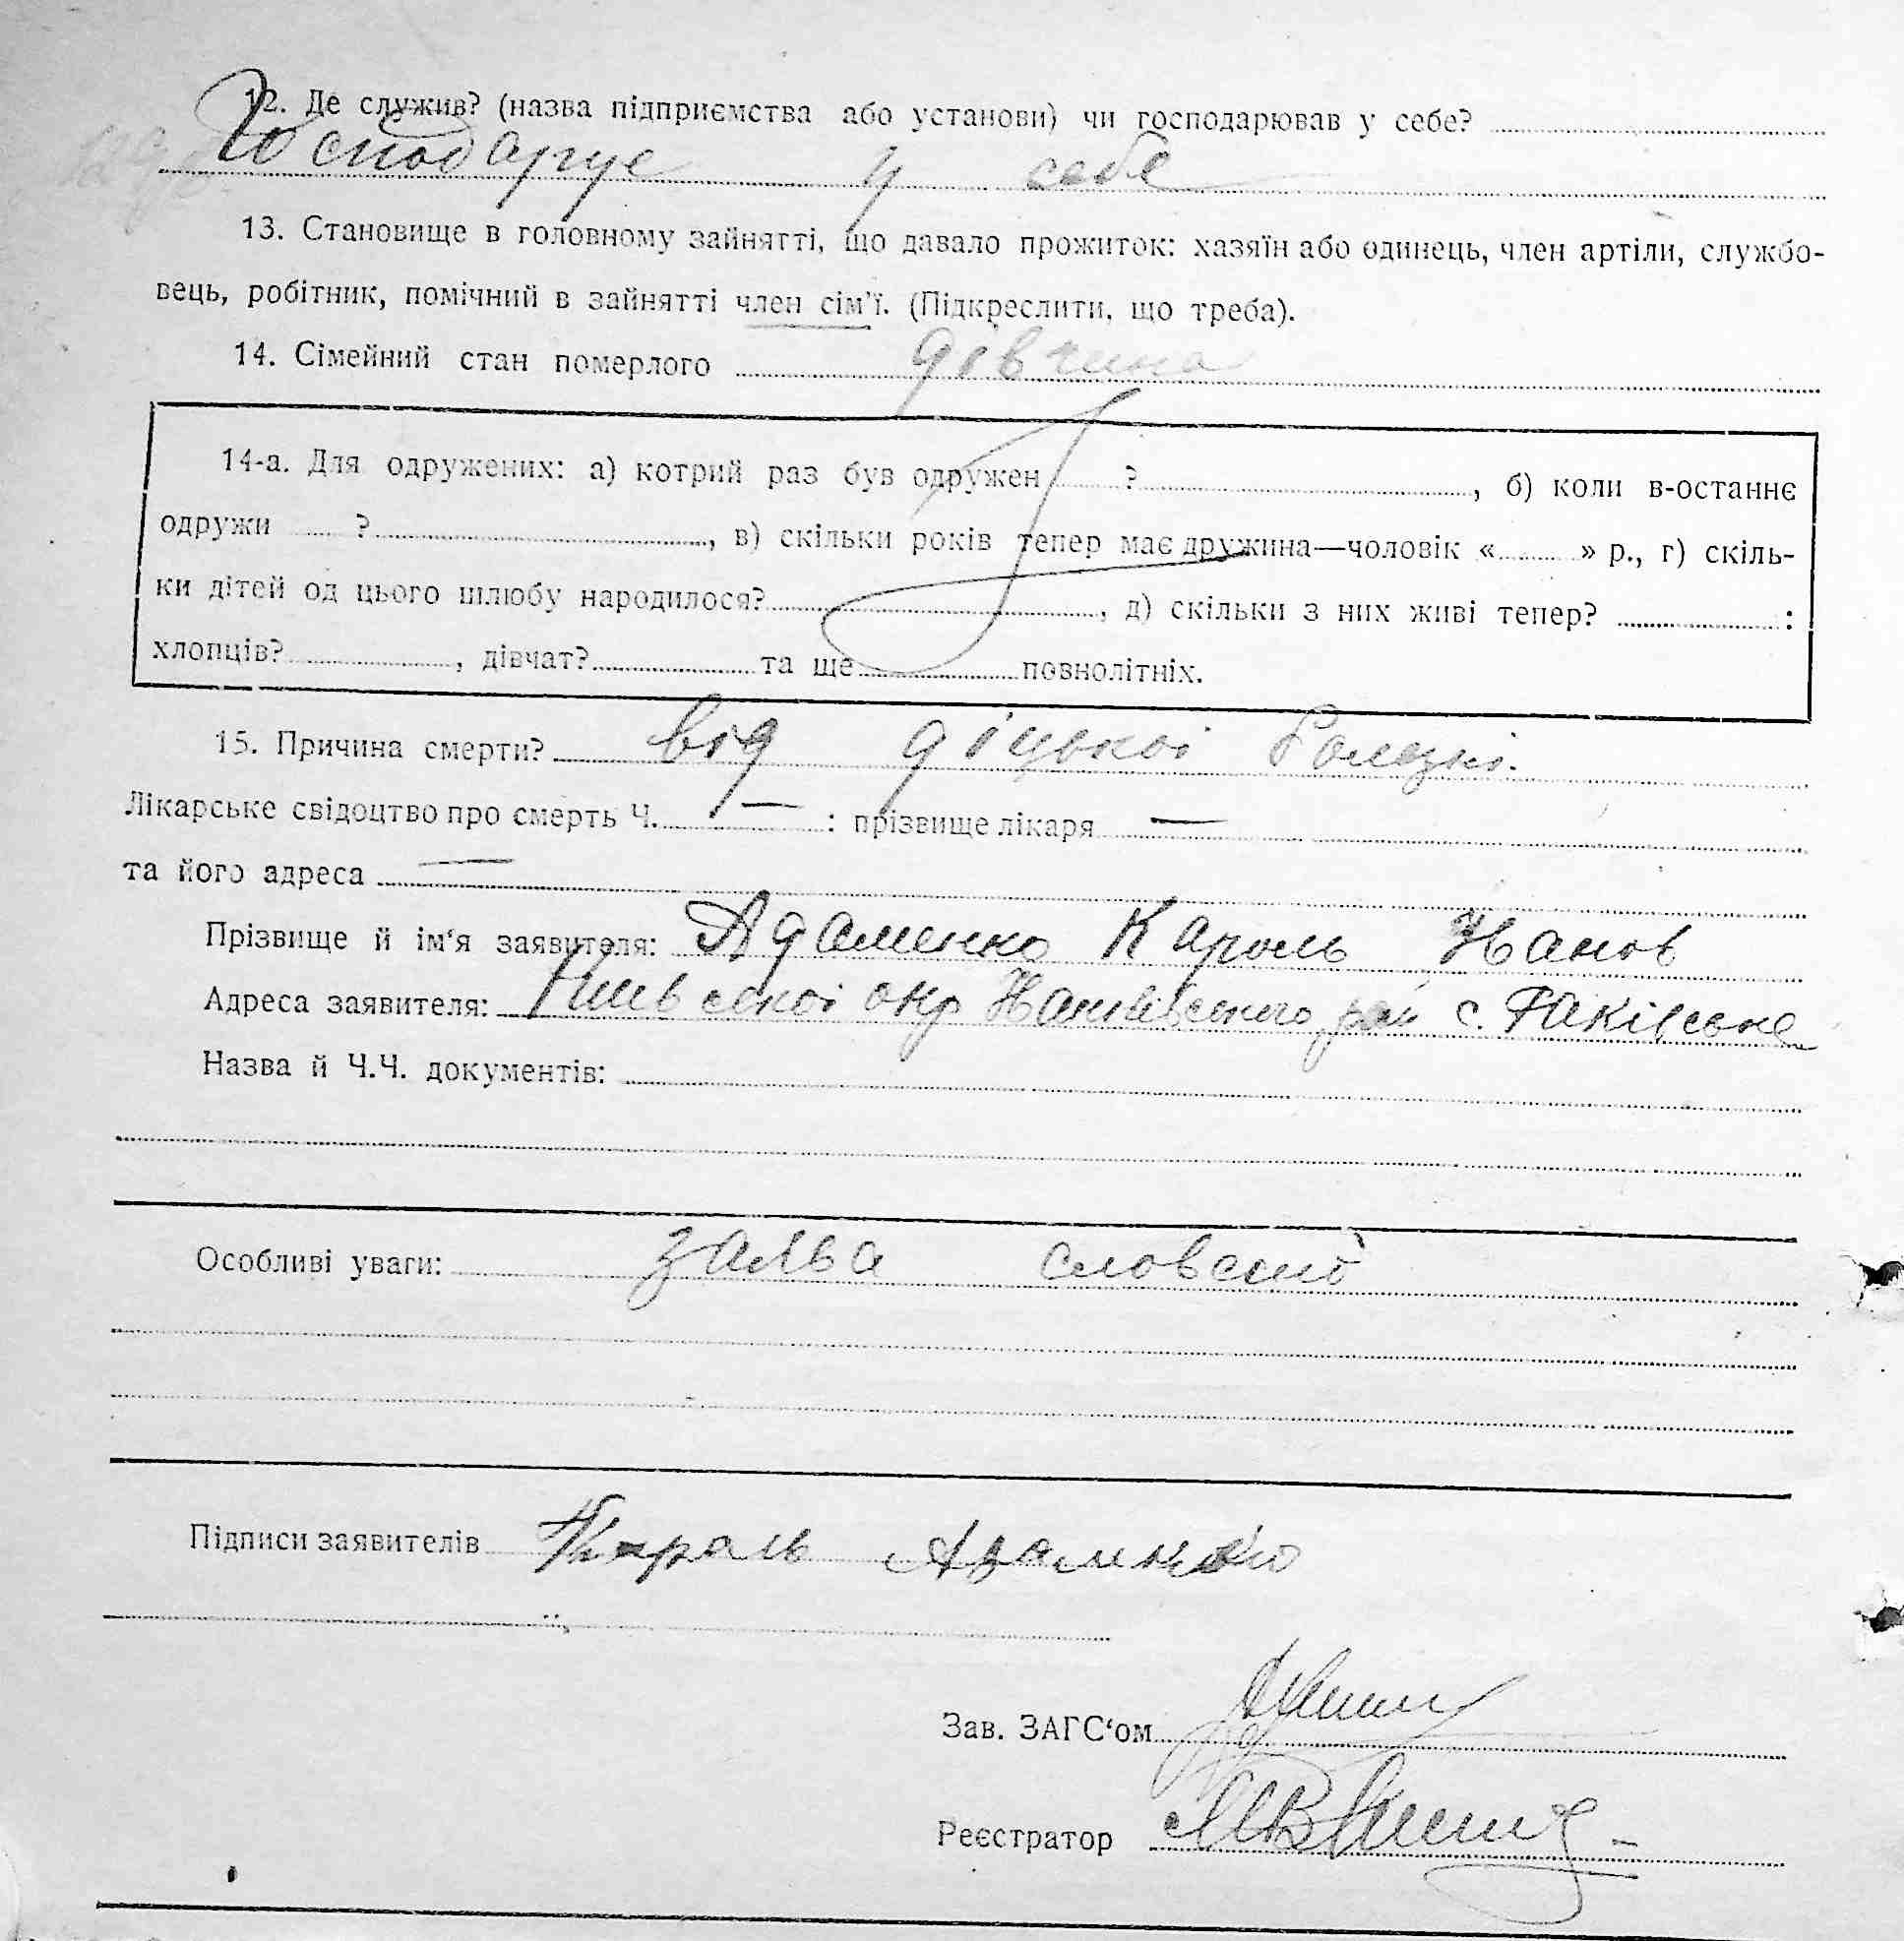 12. Де служив? (назва підприємства або установи) чи господарював у себе?
Господарує у себе
13. Становище в головному зайнятті, що давало прожиток: хазяїн або одинець, член артіли, службо-
вець, робітник, помічний в зайнятті член сім'ї. (Підкреслити, що треба).
14. Сімейний стан померлого дівчина
14-а. Для одружених: а) котрий раз був одружен ? , б) коли в-останнє
одружи ? , в) скільки років тепер має дружина—чоловік « » р., г) скіль-
ки дітей од цього шлюбу народилося? , д) скільки з них живі тепер? :
хлопців? , дівчат? та ще повнолітніх.
15. Причина смерти? від діцької болезні.
Лікарське свідоцтво про смерть Ч. — : прізвище лікаря —
та його адреса —
Прізвище й ім'я заявителя: Адаменко Кароль Иванов
Адреса заявителя: окр рай с.
Назва й Ч.Ч. документів:
Особливі уваги: заява словесно
Підписи заявителів Кароль Адаменко
Зав. ЗАГС'ом
Реєстратор